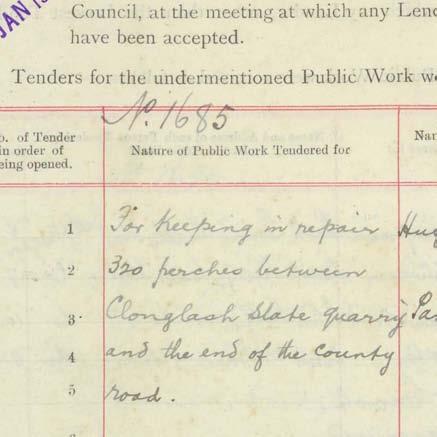 JAN 19
Council, at the meeting at which any
have been accepted.
Tenders for the undermentioned Public Work
No. 1685
of Tender
in order of
being opened.
Nature of Public Work Tendered for
1 For keeping in repair
2 320 perches between
3 Clonglash Slate quarry
4 and the end of the county
5 road.